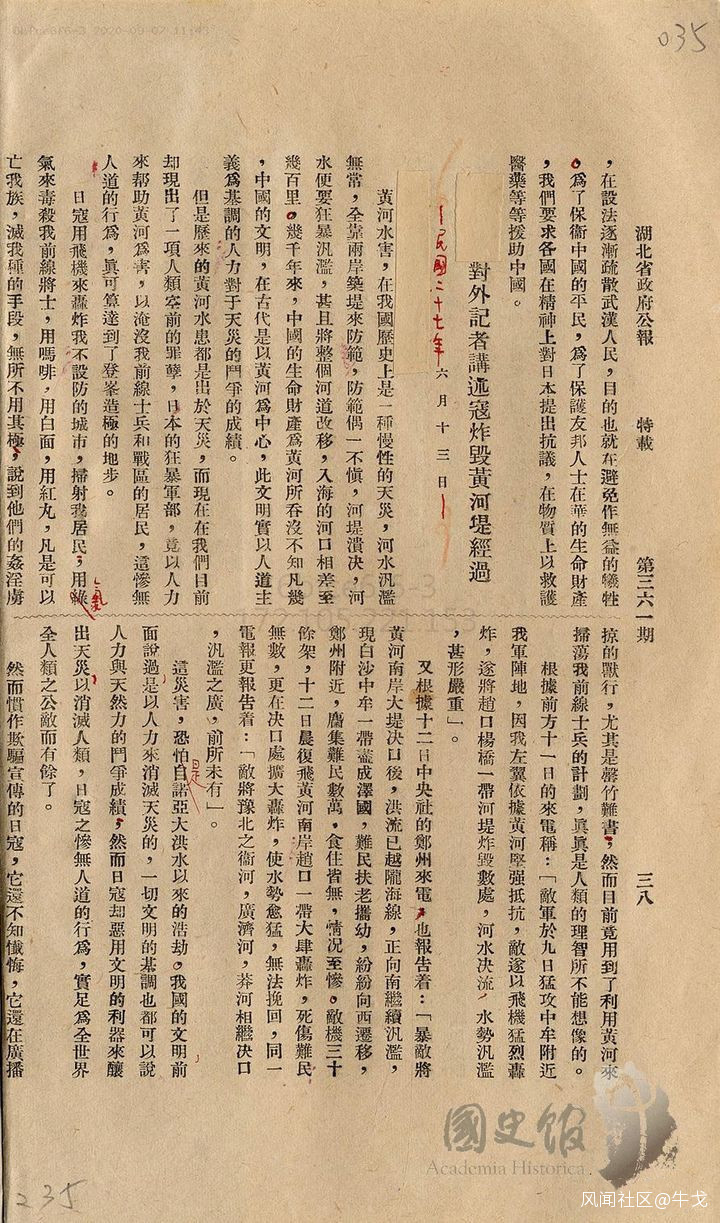 035
湖北省政府公報　特載　第三六一期　三八
，在設法逐漸疏散武漢人民，目的也就在避免作無益的犧牲
。為了保衛中國的平民，為了保護友邦人士在華的生命財產
，我們要求各國在精神上對日本提出抗議，在物質上以救護
醫藥等等援助中國。
對外記者講述寇炸毀黃河堤經過
民國二十七年六月十三日
黃河水害，在我國歷史上是一種慢性的天災，河水汎濫
無常，全靠兩岸築堤來防範，防範偶一不愼，河堤潰決，河
水便要狂暴汎濫，甚且將整個河道改移，入海的河口相差至
幾百里。幾千年來，中國的生命財產為黃河所吞沒不知凡幾
，中國的文明，在古代是以黃河為中心，此文明實以人道主
義為基調的人力對于天災的鬥爭的成績。
但是歷來的黃河水患都是出於天災，而現在在我們目前
却現出了一項人類空前的罪孽，日本的狂暴軍部，竟以人力
來帮助黃河為害，以淹沒我前線士兵和戰區的居民，這慘無
人道的行為，眞可算達到了登峯造極的地步。
日寇用飛機來轟炸我不設防的城市，掃射我居民，用綠
氣
氣來毒殺我前線將士，用嗎啡，用白面，用紅丸，凡是可以
亡我族，滅我種的手段，無所不用其極，說到他們的姦淫虜
掠的獸行，尤其是罄竹難書，然而目前竟用到了利用黃河來
掃蕩我前線士兵的計劃，眞眞是人類的理智所不能想像的。
根據前方十一日的來電稱：「敵軍於九日猛攻中牟附近
我軍陣地，因我左翼依據黃河堅強抵抗，敵遂以飛機猛烈轟
炸，遂將趙口楊橋一帶河堤炸毀數處，河水決流，水勢汎濫
，甚形嚴重」。
又根據十二日中央社的鄭州來電，也報告着：「暴敵將
黃河南岸大堤决口後，洪流已越隴海線，正向南繼續汎濫，
現白沙中牟一帶盡成澤國，難民扶老攜幼，紛紛向西遷移，
鄭州附近，麕集難民數萬，食住皆無，情况至慘。敵機三十
餘架，十二日晨復飛黃河南岸趙口一帶大肆轟炸，死傷難民
無數，更在决口處擴大轟炸，使水勢愈猛，無法挽回，同一
電報更報告着：「敵將豫北之衞河，廣濟河，莽河相繼決口
，汎濫之廣，前所未有」。
這災害，恐怕自諾亞大洪水以來的浩劫。我國的文明前
是
面說過是以人力來消滅天災的，一切文明的基調也都可以說
人力與天然力的鬥爭成績，然而日寇却惡用文明的利器來釀
出天災以消滅人類，日寇之慘無人道的行為，實足為全世界
全人類之公敵而有餘了。
然而慣作欺騙宣傳的日寇，它還不知懺悔，它還在廣播
國史館
Academia Historica
235
风闻社区@牛戈